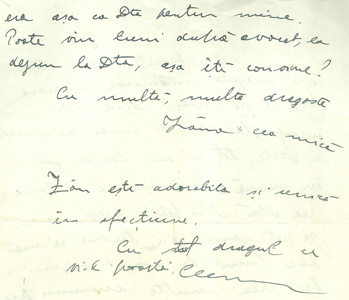 era așa ca Dta pentru mine.
Poate vin luni după avocat, ca
dejun la Dta, așa îți convine?
Cu multă, multă dragoste
Zâna cea mică
Zân ești adorabilă și unică
în afecțiune.
Cu tot dragul